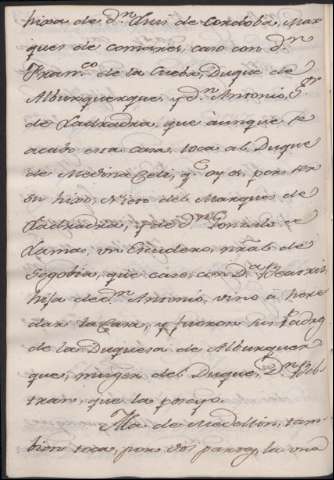 hixa de d.n Luis de Cordoba, Mar
ques de Comares, caso con d.n
Fran.co de la Cueba, Duque de
Alburquerque, y d.n Antonio,
de Ladrada, que aunque se
acabo esa casa, toca al Duque
de Medina Celi, q.e oy es, por ser
su hixo, Nieto del Marques de
Ladrada, y de d.n Gonzalo de
Lama, un Escudero, n̄ral de
Segobia, que caso con D.a Beatriz,
hija de d.n Antonio, vino a here
dar la Casa, y fueron sus Padres
de la Duquesa de Alburquer
que, muger del Duque, D.n Bel
tran, que la poseyo.
Ila. de Medellin, tam
bien toca, por dos partes, la una